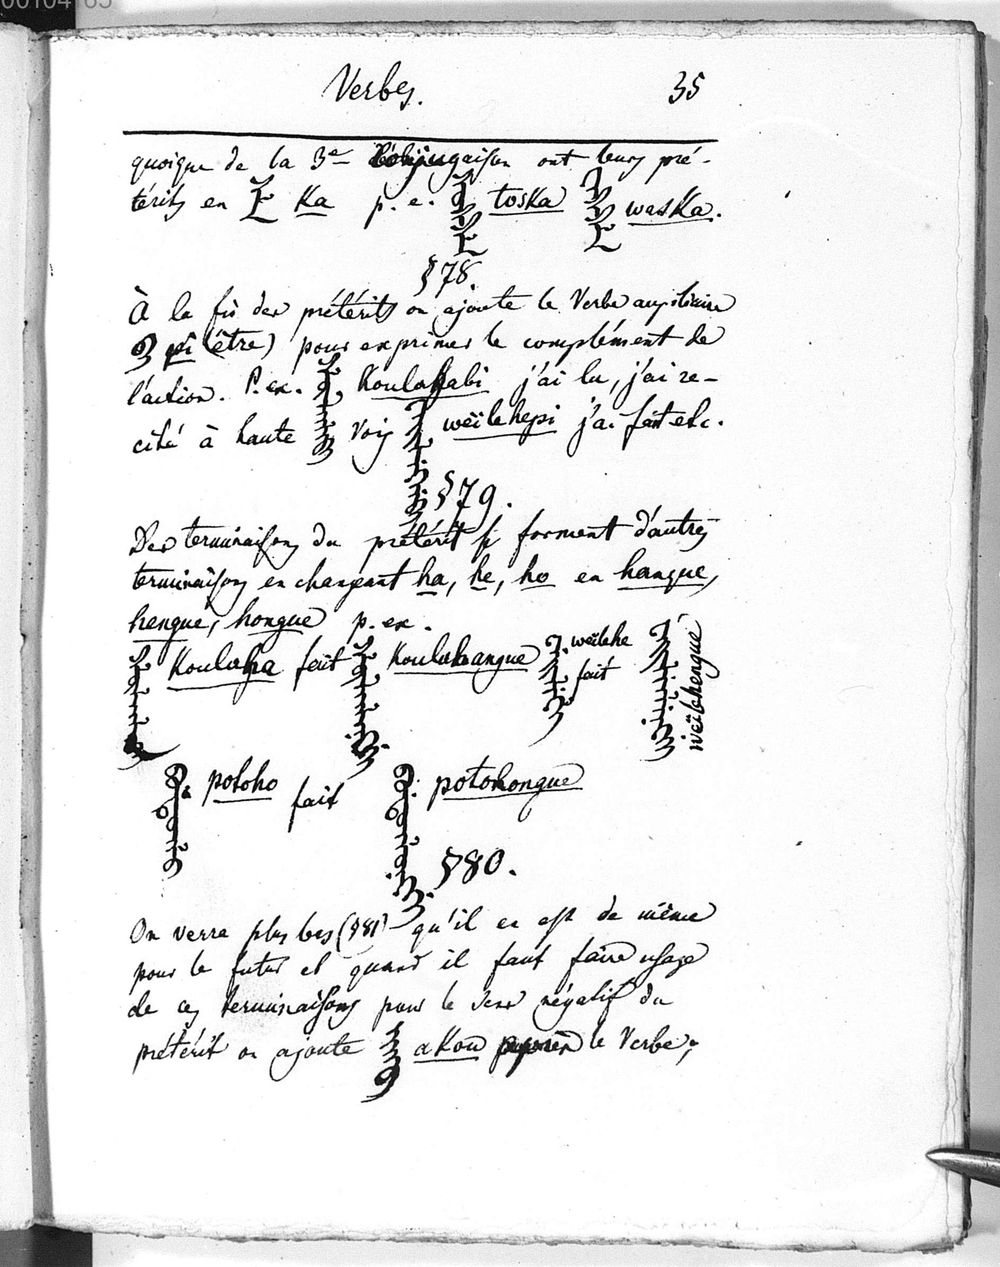 Verbes. 35
quoique de la 3e Conjugaison ont leurs pré-
térits en ka p. e. toska waska.
§ 78.
À la fin des prétérits on ajoute le Verbe auxiliaire
pi (être) pour exprimer le complément de
l'action. P. ex. Koulahabi j'ai lu, j'ai ré-
cité à haute Voix weilehepi j'ai fait etc.
§ 79.
Des terminaisons du prétérit se forment d'autres
terminaisons en changeant ha, he, ho en hangue,
hengue, hongue p. ex.
Koulaha fait Koulahangue weilehe
fait weilehengue
potoho fait potohongue
§ 80.
On verra plus bas (§ 81) qu'il en est de même
pour le futur et quand il faut faire usage
de ces terminaisons pour le sens négatif du
prétérit on ajoute akou le Verbe;